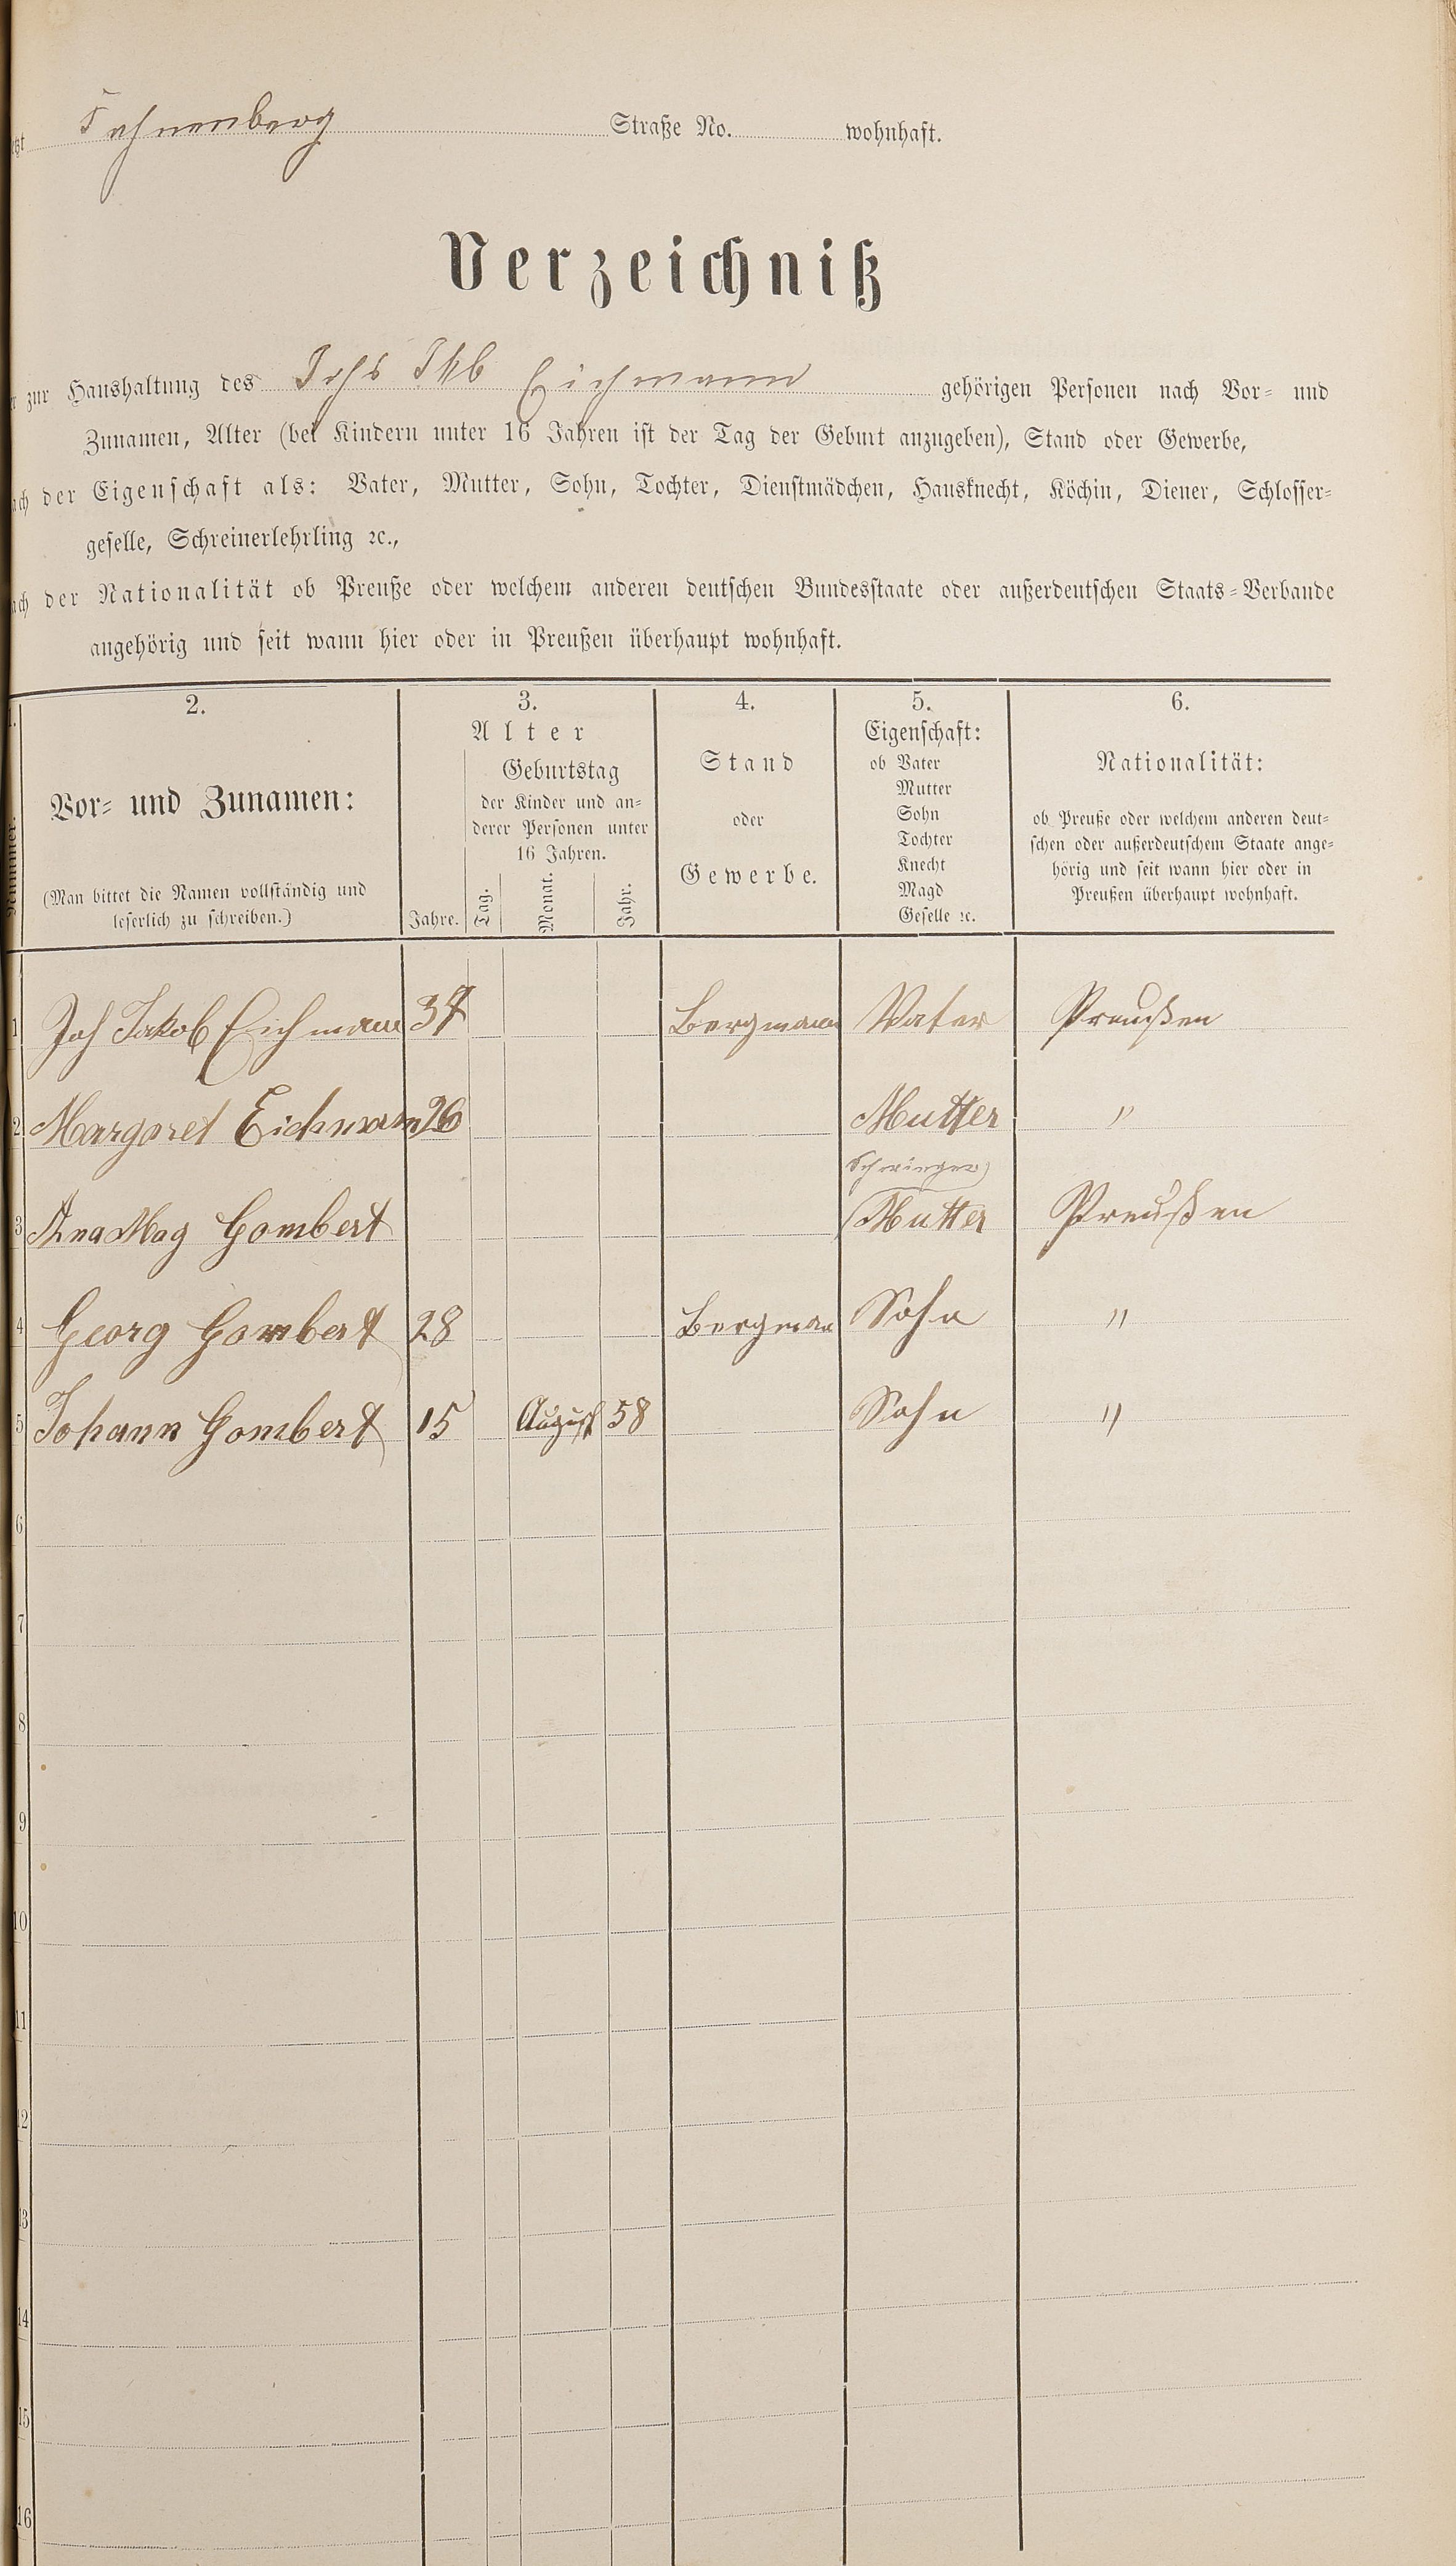 Fahnenberg Straße No. wohnhaft.
Verzeichniß
zur Haushaltung des Johs Jkb Eichmann gehörigen Personen nach Vor- und
Zunamen, Alter (bei Kindern unter 16 Jahren ist der Tag der Geburt anzugeben), Stand oder Gewerbe,
der Eigenschaft als: Vater, Mutter, Sohn, Tochter, Dienstmädchen, Hausknecht, Köchin, Diener, Schlosser-
geselle, Schreinerlehrling ꝛc.,
der Nationalität ob Preuße oder welchem anderen deutschen Bundesstaate oder außerdeutschen Staats-Verbande
angehörig und seit wann hier oder in Preußen überhaupt wohnhaft.
2. 3. 4. 5. 6.
Nummer.
Vor- und Zunamen:
(Man bittet die Namen vollständig und
leserlich zu schreiben.)
Alter
Jahre.
Geburtstag
der Kinder und an-
derer Personen unter
16 Jahren.
Tag. Monat. Jahr.
Stand
oder
Gewerbe.
Eigenschaft:
ob Vater
Mutter
Sohn
Tochter
Knecht
Magd
Geselle ꝛc.
Nationalität:
ob Preuße oder welchem anderen deut-
schen oder außerdeutschem Staate ange-
hörig und seit wann hier oder in
Preußen überhaupt wohnhaft.
1 Joh Jakob Eichmann Bergmann Vater Preußen
2 Margaret Eichmann 26 Mutter "
Schwieger
3 Ana Mag Gombert Mutter Preußen
4 Georg Gombert 28 Bergman Sohn "
5 Johann Gombert 15 August 58 Sohn "
6
7
8
9
10
11
12
13
14
15
16